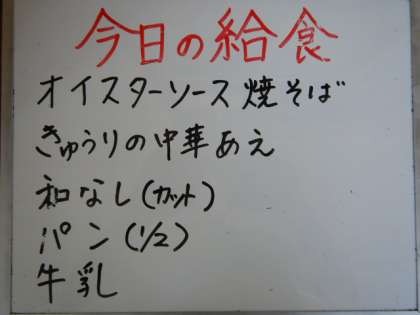 今日の給食
オイスターソース焼そば
きゅうりの中華あえ
和なし(カット)
パン(1/2)
牛乳